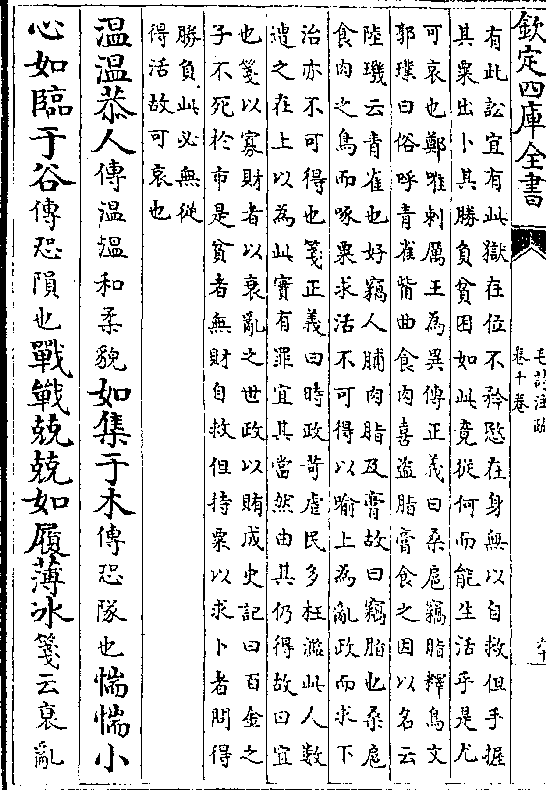 欽定四庫全書
毛詩注疏
卷十九
有此訟宜有此獄在位不矜愍在身無以自救但手握
其粟出卜其勝負貧困如此竟從何而能生活乎是尤
可哀也鄭唯刺厲王為異傳正義曰桑扈竊脂釋鳥文
郭璞曰俗呼青雀觜曲食肉喜盜脂膏食之因以名云
陸璣云青雀也好竊人脯肉脂及膏故曰竊脂也桑扈
食肉之鳥而啄粟求活不可得以喻上為亂政而求下
治亦不可得也箋正義曰時政苛虐民多枉濫此人數
遭之在上以為此實有罪宜其當然由其仍得故曰宜
也箋以寡財者以衰亂之世政以賄成史記曰百金之
子不死於市是貧者無財自救但持粟以求卜者問得
勝負此必無從
得活故可哀也
溫溫恭人傳溫溫和柔貌如集于木傳恐隊也惴惴小
心如臨于谷傳恐隕也戰戰兢兢如履薄冰箋云衰亂